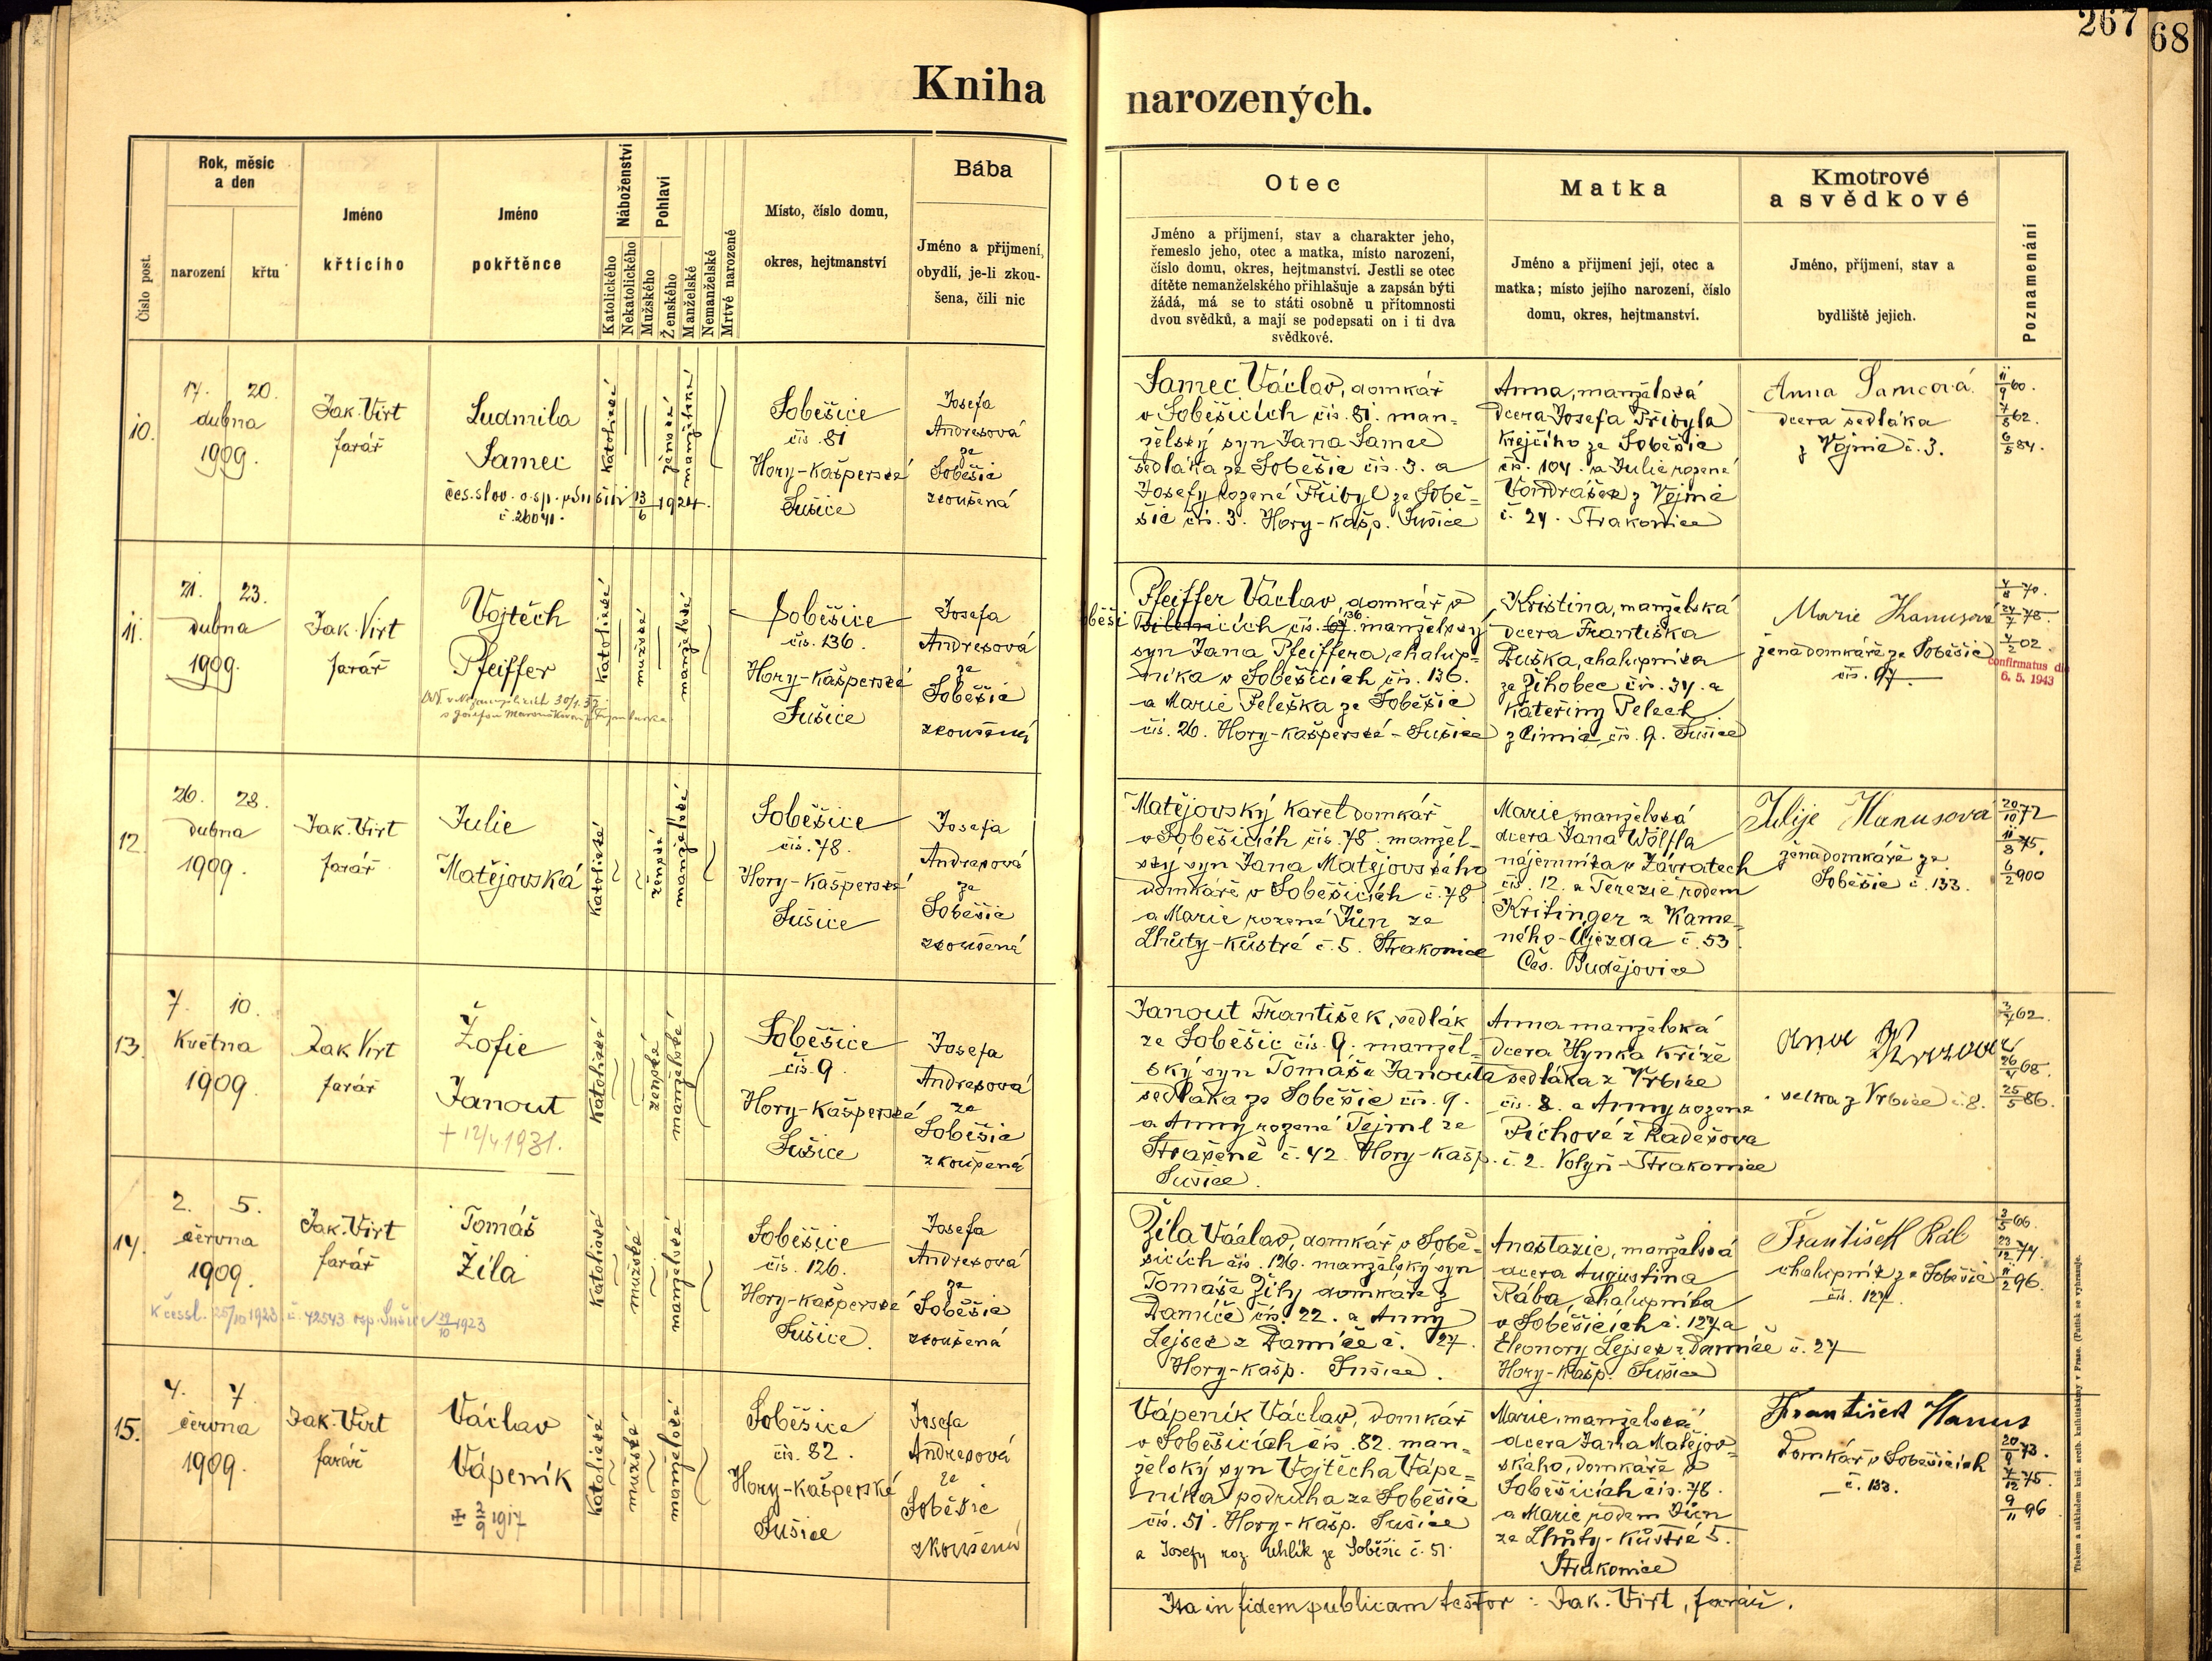 267
68
Kniha narozených.
Číslo post.
Rok, měsíc a den
narození
křtu
Jméno křtícího
Jméno pokřtěnce
Náboženství
Katolického
Nekatolického
Pohlaví
Mužského
Ženského
Manželské
Nemanželské
Mrtvě narozené
Místo, číslo domu,
okres, hejtmanství
Bába
Jméno a příjmení,
obydlí, je-li zkou-
šena, čili nic
Otec
Jméno a příjmení, stav a charakter jeho,
řemeslo jeho, otec a matka, místo narození,
číslo domu, okres, hejtmanství. Jestli se otec
dítěte nemanželského přihlašuje a zapsán býti
žádá, má se to státi osobně u přítomnosti
dvou svědků, a mají se podepsati on i ti dva
svědkové.
Matka
Jméno a příjmení její, otec a
matka; místo jejího narození, číslo
domu, okres, hejtmanství.
Kmotrové
a svědkové
Jméno, příjmení, stav a
bydliště jejich.
Poznamenání
10.
17. 20.
dubna
1909.
Jak. Virt
farář
Ludmila
Samec
čes. slov. o. sp. Sušici 13/6 1924.
č. 26041.
katolické
ženské
manželské
Soběšice
čís. 81
Hory-Kašperské
Sušice
Josefa
Andresová
ze
Soběšic
zkoušená
Samec Václav, domkář
v Soběšicích čís. 81. man-
želský syn Jana Samce
sedláka ze Soběšic čís. 3. a
Josefy rozené Přibyl ze Sobě-
šic čís. 3. Hory-Kašp. Sušice
Anna, manželská
dcera Josefa Přibyla
krejčího ze Soběšic
čís. 104. a Julie rozené
Vondrášek z Vojnic
č. 24. Strakonice
Anna Samcová
dcera sedláka
z Vojnic č. 3.
11/9 60.
7/8 62.
6/5 84.
11.
21. 23.
dubna
1909.
Jak. Virt
farář
Vojtěch
Pfeiffer
katolické
mužské
manželské
Soběšice
čís. 136.
Hory-Kašperské
Sušice
Josefa
Andresová
ze
Soběšic
zkoušená
Pfeiffer Václav, domkář v
Soběšicích čís. 136. manželský
syn Jana Pfeiffera, chalup-
níka v Soběšicích čís. 136.
a Marie Peleška ze Soběšic
čís. 26. Hory-Kašperské - Sušice
Kristina, manželská
dcera Františka
Duška, chalupníka
ze Žihobec čís. 34. a
Kateřiny Pelech
z Čimic čís. 9. Sušice
Marie Hanusová
žena domkáře ze Soběšic
čís. 97.
4/8 70.
24/7 78.
4/2 02.
confirmatus die
6. 5. 1943
12.
26. 28.
dubna
1909.
Jak. Virt
farář
Julie
Matějovská
katolické
ženské
manželské
Soběšice
čís. 78.
Hory-Kašperské
Sušice
Josefa
Andresová
ze
Soběšic
zkoušená
Matějovský Karel domkář
v Soběšicích čís. 78. manžel-
ský syn Jana Matějovského
domkáře v Soběšicích č. 78
a Marie rozené Jůn ze
Lhůty-Kůstré č. 5. Strakonice
Marie, manželská
dcera Jana Wölfla
nájemníka v Závratech
čís. 12. a Terezie rodem
Kritinger z Kame-
ného-Újezda č. 53.
Čes. Budějovice
Julije Hanusova
žena domkáře ze
Soběšic č. 133.
20/10 72
11/8 75.
6/2 900
13.
7. 10.
Května
1909.
Jak Virt
farář
Žofie
Janout
† 12/4 1931.
katolické
ženské
manželské
Soběšice
čís. 9
Hory-Kašperské
Sušice
Josefa
Andresová
ze
Soběšic
zkoušená
Janout František, sedlák
ze Soběšic čís. 9. manžel-
ský syn Tomáše Janouta
sedláka ze Soběšic čís. 9.
a Anny rozené Tejml ze
Strašeně č. 42. Hory-Kašp.
Sušice.
Anna manželská
dcera Hynka Kříže
sedláka z Vrbice
čís. 8. a Anny rozené
Píchové z Radešova
č. 2. Volyň-Strakonice
selka z Vrbice č. 8.
26/4 68.
25/5 86.
14.
2. 5.
června
1909.
Jak. Virt
farář
Tomáš
Žila
K čessl. 25/10 1923 č. 42543 osp. Sušice 29/10 1923
katolické
mužské
manželské
Soběšice
čís. 126.
Hory-Kašperské
Sušice.
Josefa
Andresová
ze
Soběšic
zkoušená
Žíla Václav, domkář v Sobě-
šicích čís. 126. manželský syn
Tomáše Žíly domkáře z
Damíče čís. 22. a Anny
Lejsek z Damíče č. 27.
Hory-Kašp. Sušice.
Anastazie, manželská
dcera Augustina
Rába, chalupníka
v Soběšicích č. 127 a
Eleonory Lejsek z Damíče č. 27
Hory-Kašp. Sušice
František Ráb
chalupník ze Soběšic
čís. 127.
3/5 66.
23/12 74.
11/2 96.
15.
4. 7.
června
1909.
Jak. Virt
farář
Václav
Vápeník
2/9 1917
katolické
mužské
manželské
Soběšice
čís. 82.
Hory-Kašperské
Sušice
Josefa
Andresová
ze
Soběšic
zkoušená
Vápeník Václav, domkář
v Soběšicích čís. 82. man-
želský syn Vojtěcha Vápe-
níka podruha ze Soběšic
čís. 51. Hory-Kašp. Sušice
a Josefy roz. Uhlík ze Soběšic č. 51.
Marie, manželská
dcera Jana Matějov-
ského, domkáře v
Soběšicích čís. 78.
a Marie rodem Jůn
ze Lhůty-Kůstré 5.
Strakonice
František Hanus
Domkář v Soběšicích
č. 133.
20/9 73.
4/12 75.
9/11 96
Ita in fidem publicam testor: Jak. Virt, farář.
Tiskem a nákladem kníž. arcib. knihtiskárny v Praze. (Patisk se vyhrazuje.